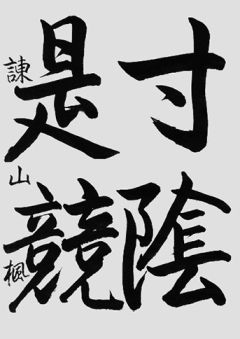 寸陰
是競
諌山楓